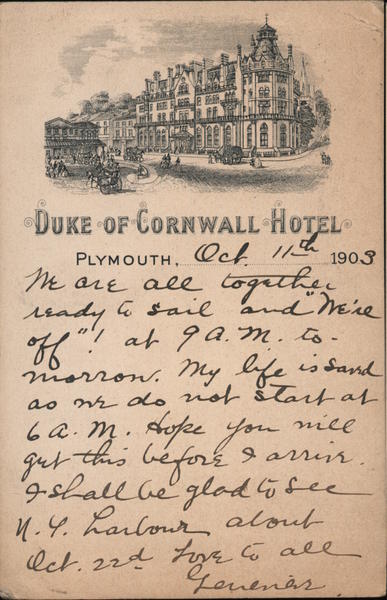 DUKE OF CORNWALL HOTEL
PLYMOUTH, Oct. 11th 1903
We are all together
ready to sail and "We're
off"! at 9 A.M. to-
morrow. My life is saved
as we do not start at
6 A.M. Hope you will
get this before I arrive.
I shall be glad to see
N.Y. Harbour about
Oct. 22d Love to all